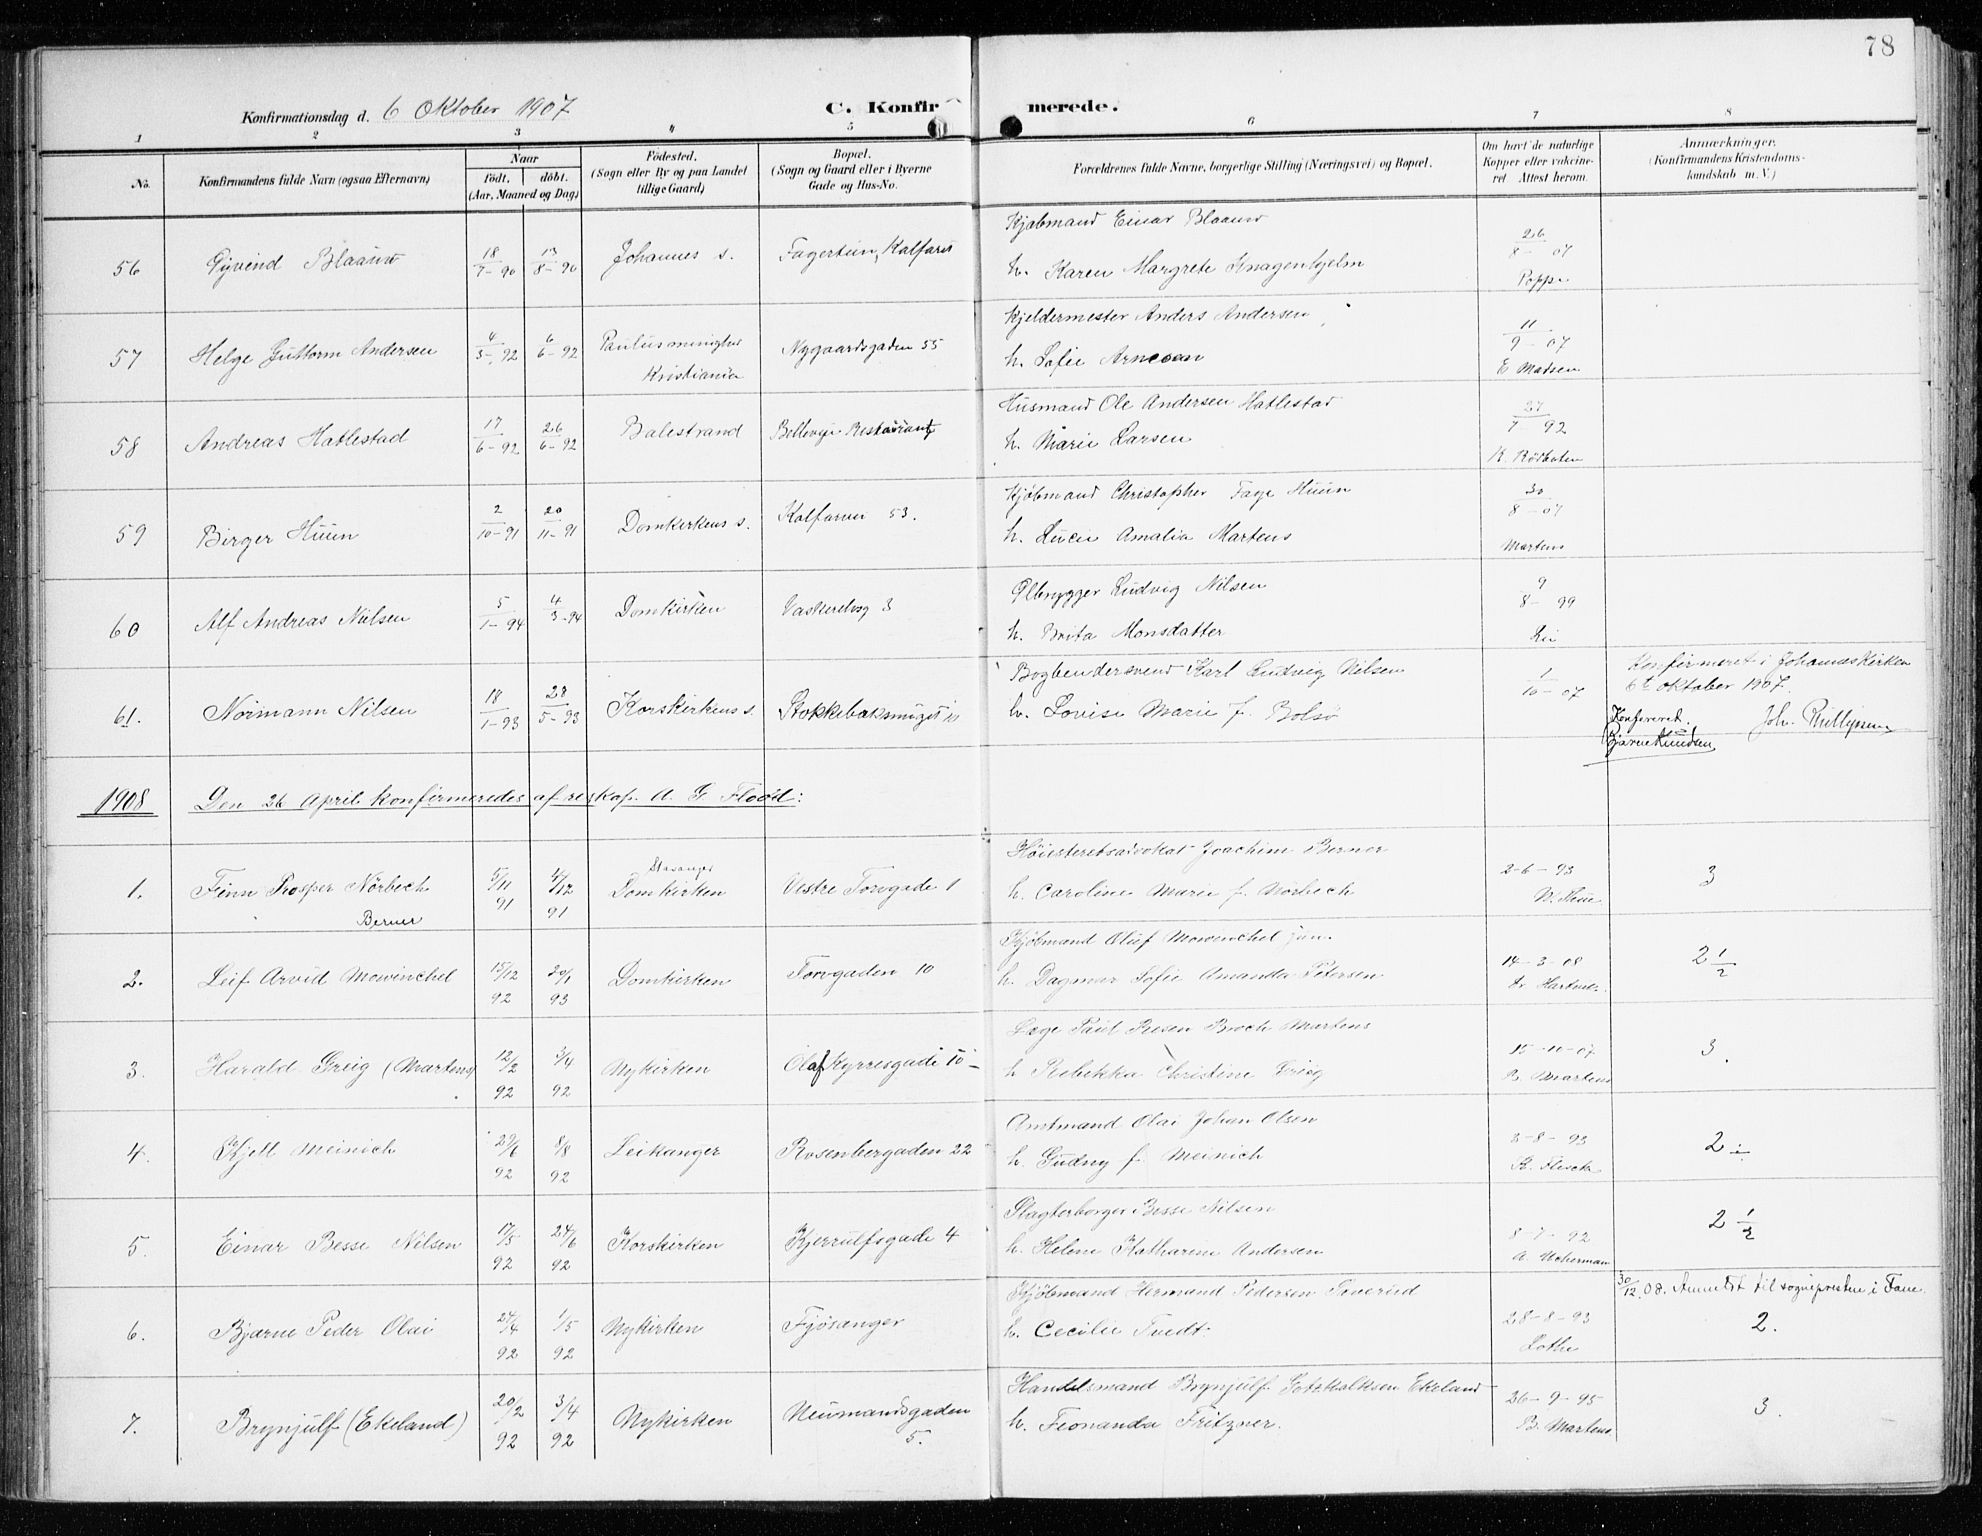 78
Konfirmationsdag d. 6 Oktober 1907
C. Konfirmerede.
1 2 3 4 5 6 7 8
No.
Konfirmandens fulde Navn (ogsaa Efternavn)
Naar
Födt. döbt.
(Aar, Maaned og Dag)
Födested.
(Sogn eller By og paa Landet
tillige Gaard)
Bopæl.
(Sogn og Gaard eller i Byerne
Gade og Hus-No.
Forældrenes fulde Navne, borgerlige Stilling (Næringsvei) og Bopæl.
Om havt de naturlige
Kopper eller vakcine-
ret. Attest herom.
Anmærkninger.
(Konfirmandens Kristendoms-
kundskab m. V.)
56 Öyvind Blaauw 18/7-90 13/8-90 Johannes s. Fagertun, Kalfaret
Kjøbmand Einar Blaauw
h. Karen Margrete Knagenhjelm
26/8-07
Poppe
57 Helge Guttorm Andersen 4/3-92 6/6-92 Paulus
Kristiania
Nygaardsgaden 55
Kjeldermester Anders Andersen
h. Sofie Arnesen
11/9-07
E Madsen
58 Andreas Hatlestad 17/6-92 26/6-92 Balestrand Bellevue Restaurant
Husmand Ole Andersen Hatlestad
h. Marie Larsen
27/7 92
59 Birger Huun 2/10-91 20/11-91 Domkirkens s. Kalfarvei 53.
Kjøbmand Christopher Faye Huun
h. Lucie Amalia Martens
30/8-07
Martens
60 Alf Andreas Nilsen 5/1-94 4/3-94 Domkirken Vaskerelvg 3
Ølbrygger Ludvig Nilsen
h. Brita Monsdatter
9/8-99
61. Normann Nilsen 18/1-93 28/5-93 Korskirkens s. Stokkebaksmuget 10
Bogbendersvend Karl Ludvig Nilsen
h. Lovise Marie f. Bolsø
1/10-07
Konfirmeret i Johanneskirken
6te oktober 1907.
Konfereret.
Bjarne Knudsen
1908 Den 26 April konfirmeredes af reskap. A. G. Flood:
1. Finn Prosper Nörbech
Berner
5/11 91 4/12 91
Stavanger
Domkirken
Vestre Torvgade 1
Höiesteretsadvokat Joachim Berner
h. Caroline Marie f. Nörbech
2-6-93
3
2. Leif Arvid Mowinckel 15/12 92 20/1 93 Domkirken Torvgaden 10
Kjöbmand Oluf Mowinckel jun.
h. Dagmar Sofie Amanda Petersen
14-3-08
2 1/2
3. Harald Greig (Martens) 12/2 92 3/4 92 Nykirken Olaf Kyrresgade 10
Læge Paul Riesen Broch Martens
h Rebekka Christine Grieg
15-10-07
B. Martens
3.
4. Kjell Meinich 29/6 92 8/8 92 Leikanger Rosenbergaden 22
Amtmand Olai Johan Olsen
h. Gudny f. Meinich
3-8-93
2 ÷
5. Einar Besse Nilsen 17/5 92 24/6 92 Korskirken Kjerrulfsgade 4
Slagterborger Besse Nilsen
h. Helene Katharine Andersen
8-7-92
A. Ucherman
2 1/2
6. Bjarne Peder Olai 24/4 92 1/5 92 Nykirken Fjösanger
Kjöbmand Hermand Pedersen Toverud
h. Cecilie Tvedt.
28-8-93
Lothe
30/12.08. Anmeldt til sognepresten i Fane.
2.
7. Brynjulf (Ekeland) 20/2 92 3/4 92 Nykirken Neumandsgaden
5.
Handelsmand Brynjulf Gotskalksen Ekeland
h. Fernanda Fritzner.
26-9-95
B. Martens
3.